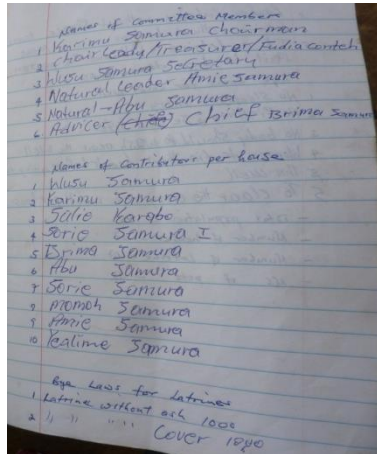 Names of Committee Members
1 Karimu Samura Chairman
2 Chair Leady/Treasurer/Fudia conteh
3 Wusu Samura Secretary
4 Natural Leader Amie Samura
5 Natural-Abu Samura
6 Advicer Chief Brima Samura
Names of Contributors per house
1 Wusu Samura
2 Karimu Samura
3 Salie Karabo
4 Sorie Samura I
5 Brima Samura
6 Abu Samura
7 Sorie Samura
8 Momoh Samura
9 Amie Samura
10 Kalime Samura
Bye Laws for Latrines
1 Latrine without ash 1000
2 " " " " Cover 1000